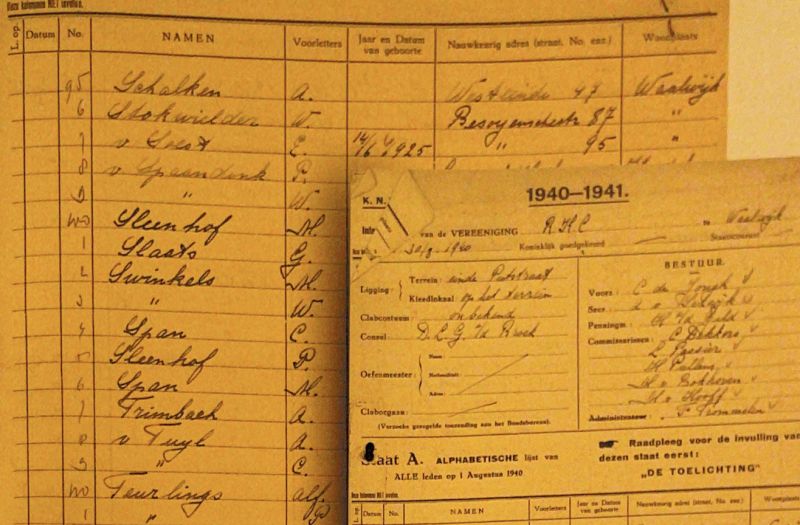 Deze kolommen NIET invullen.
L. op. Datum No. NAMEN Voorletters Jaar en Datum van geboorte Nauwkeurig adres (straat, No. enz.) Woonplaats
95 Schalken A. Westeinde 47 Waalwijk
6 Stokwielder W. Besoyenschestr 87 "
7 v Soest E. 14/6 1925 " 95 "
8 v Spaandonk P.
9 " W.
100 Sleenhof M.
1 Slaats G.
2 Swinkels M.
3 " W.
4 Span C.
5 Sleenhof P.
6 Span M.
7 Trimbach A.
8 v Tuyl A.
9 " C.
Teurlings Alf.
1 " P
K. N.
1940–1941.
van de VEREENIGING R.K.C. te Waalwijk
Koninklijk goedgekeurd Staatscourant
Ligging: Terrein: einde Putstraat
Kleedlokaal op het terrein
Clubcostuum onbekend
Consul D.L.G. v/d Broek
Naam:
Oefenmeester: Nationaliteit:
Adres:
Cluborgaan:
(Verzoeke geregelde toezending aan het Bondsbureau).
BESTUUR.
Voorz.: C de Jongh
Secr.
Penningm.
Commissarissen: C Dekkers
L. Passier
Administrateur:
Staat A. ALPHABETISCHE lijst van
ALLE leden op 1 Augustus 1940
Raadpleeg voor de invulling van
dezen staat eerst:
"DE TOELICHTING"
Deze kolommen NIET invullen.
L. op. Datum No. NAMEN Voorletters Jaar en Datum van geboorte Nauwkeurig adres (straat, No. enz.) Woonplaats